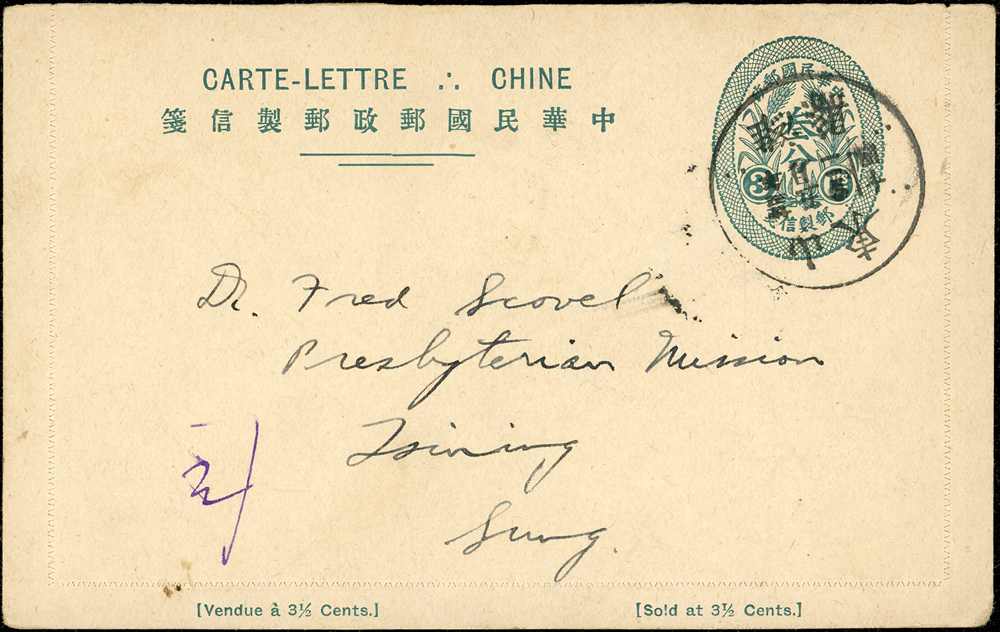 CARTE-LETTRE ∴ CHINE
箋信製郵政郵國民華中
叁分
3
箋信製郵
Dr. Fred Scovel
Presbyterian Mission
Tsining
Sung.
[Vendue à 3½ Cents.]
[Sold at 3½ Cents.]